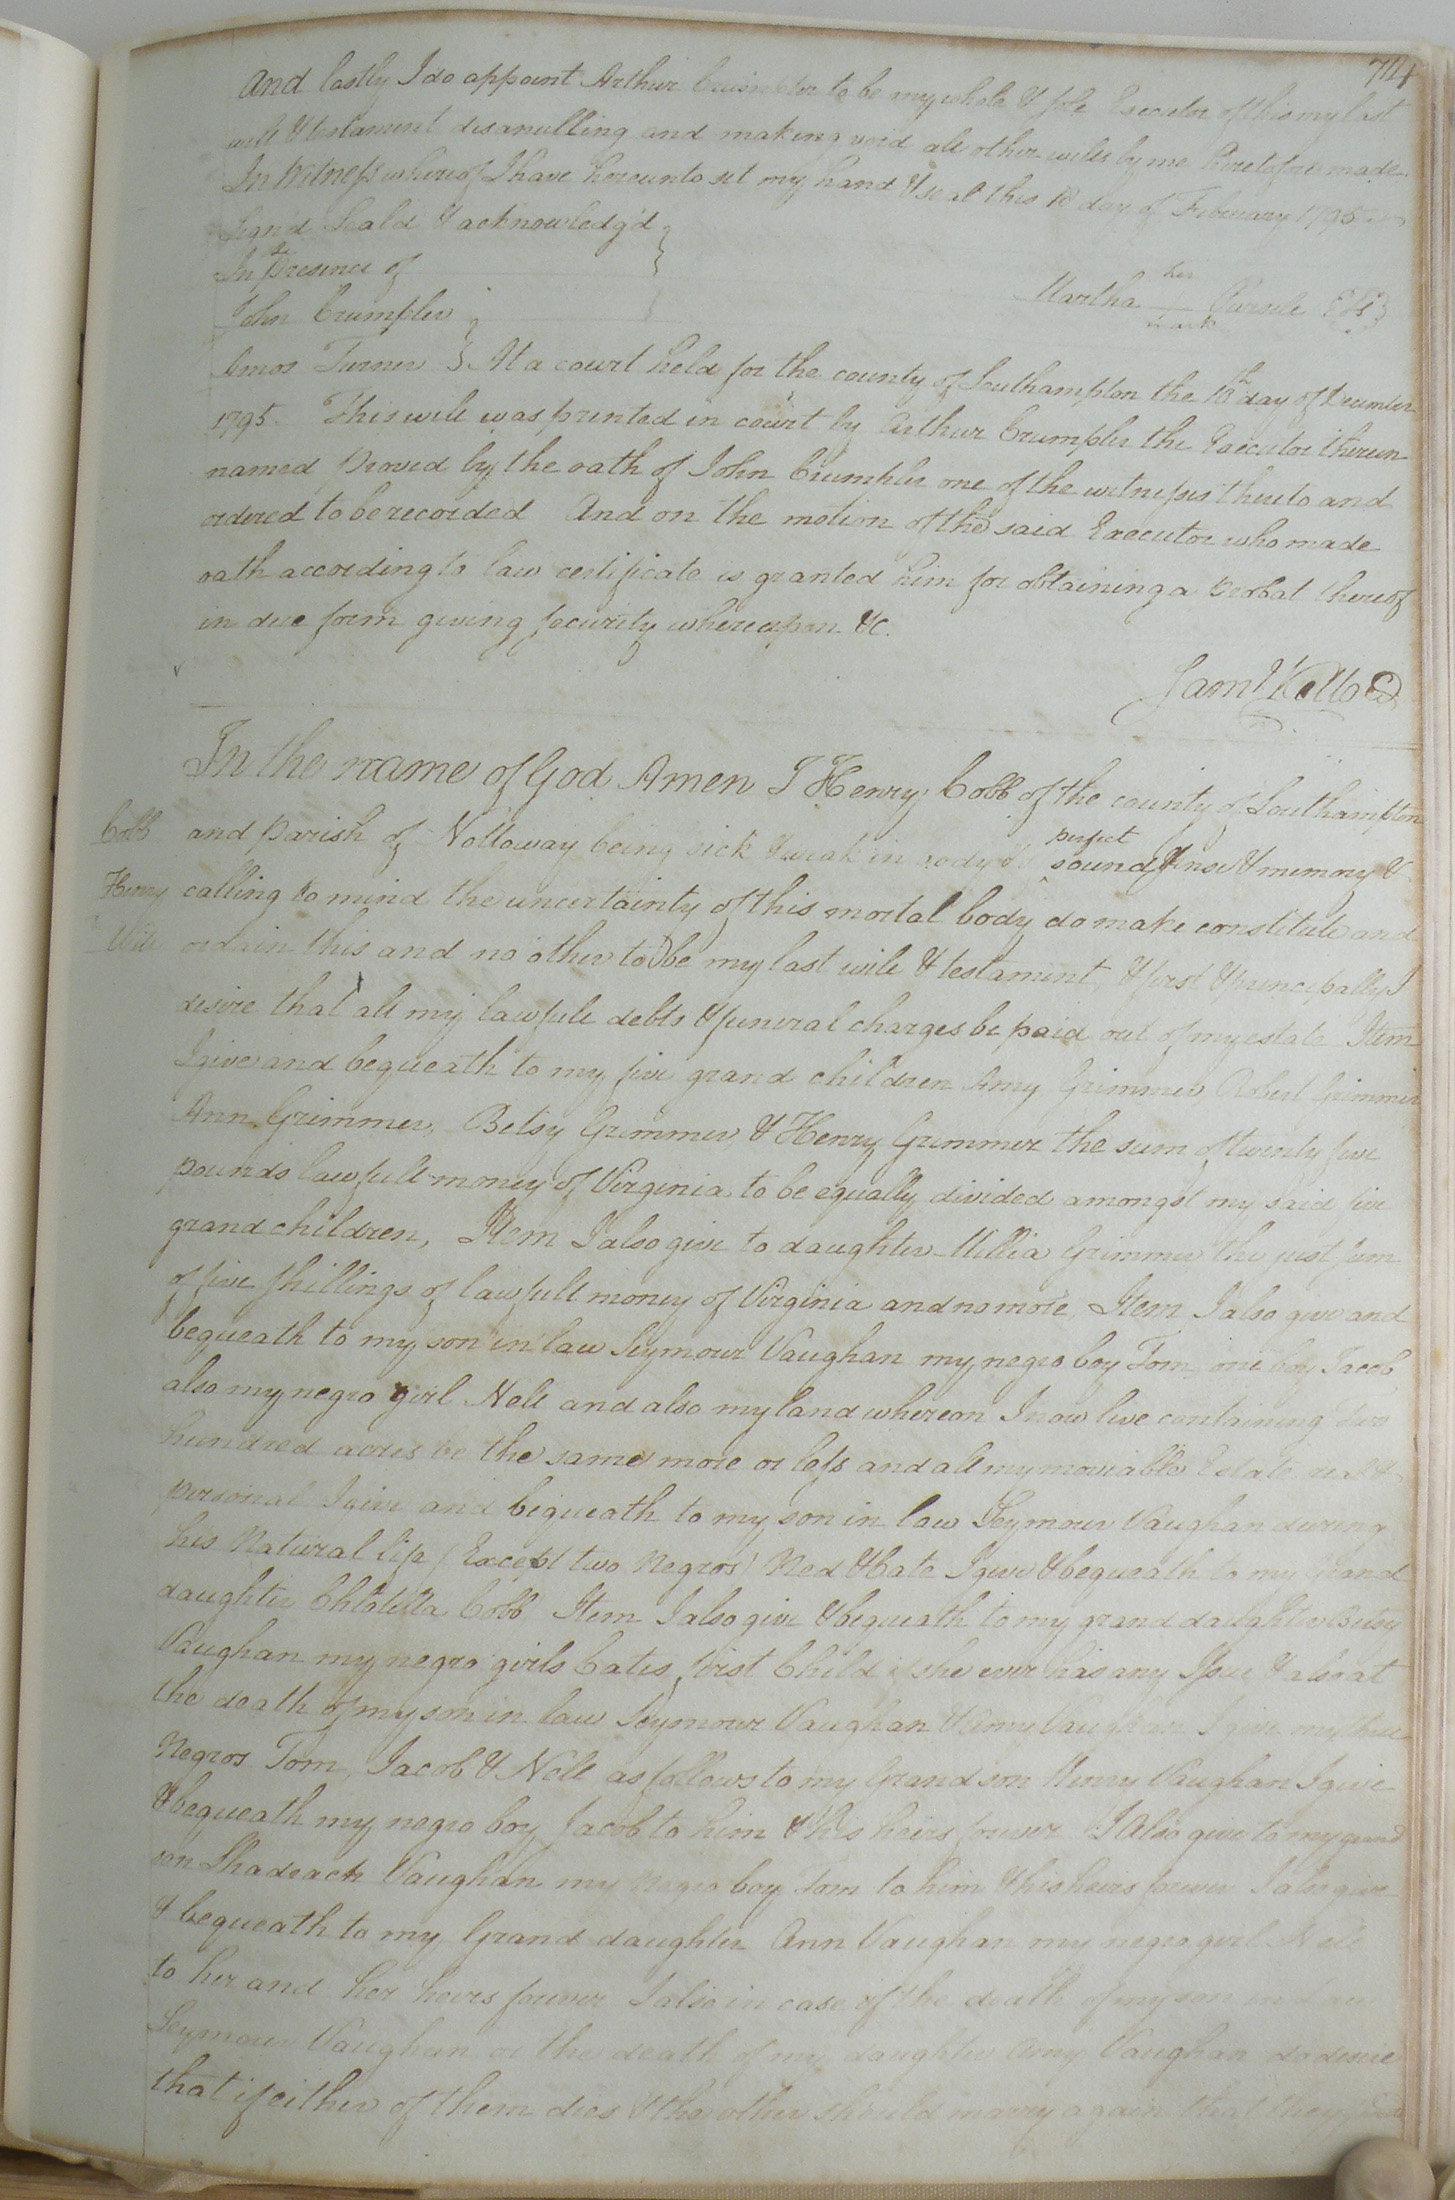 714
And lastly I do appoint Arthur Crumpler to be my whole & sole Executor of this my last
will & testament disanulling and making void all other wills by me heretofore made.
In Witness whereof I have hereunto set my hand & seal this 18 day of February 1795
Signd Seald & acknowledg'd
In Presence of
her
Martha
mark
John Crumpler
Amos Turner At a court held for the county of Southampton the 10th day of December
1795. This will was presented in court by Arthur Crumpler the Executor therein
named Proved by the oath of John Crumpler one of the witnesses thereto and
ordered to be recorded And on the motion of the said Executor who made
oath according to law certificate is granted him for obtaining a Probat thereof
in due form giving security whereupon &c.
Saml Kello
In the name of God Amen I Henry Cobb of the county of Southampton
Cobb
Henry
Will
and Parish of Nottoway being sick & weak in body perfect sound sense & memory &
calling to mind the uncertainty of this mortal body do make constitute and
ordain this and no other to be my last will & testament, & first & principally I
desire that all my lawfull debts & funeral charges be paid out of my estate Item
I give and bequeath to my five grand children Amy Grimmer Robert Grimmer
Ann Grimmer, Betsy Grimmer, & Henry Grimmer the sum of twenty five
pounds lawfull money of Virginia to be equally divided amongst my said five
grand children, Item I also give to daughter Millia Grimmer the just sum
of five shillings of lawfull money of Virginia and no more, Item I also give and
bequeath to my son in law Seymour Vaughan my negro boy Tom one boy Jacob
also my negro girl Nell and also my land whereon I now live containing two
hundred acres be the same more or less and all my moveable Estate real &
personal I give and bequeath to my son in law Seymour Vaughan during
his Natural life (Except two Negros) Ned & Cate I give & bequeath to my Grand
daughter Chlotilla Cobb Item I also give & bequeath to my grand daughter Betsy
Vaughan my negro girls Cates first Child if she ever has any Issue & also at
the death of my son in law Seymour Vaughan & Amy Vaughan I give my three
Negros Tom, Jacob & Nell as follows to my Grand son Henry Vaughan I give
& bequeath my negro boy Jacob to him & his heirs forever I Also give to my grand
son Shadrack Vaughan my negro boy Tom to him & his heirs forever I also give
& bequeath to my Grand daughter Ann Vaughan my negro girl Nell
to her and her heirs forever I also in case of the death of my son in law
Seymour Vaughan or the death of my daughter Amy Vaughan do desire
that if either of them dies & the other should marry again that they